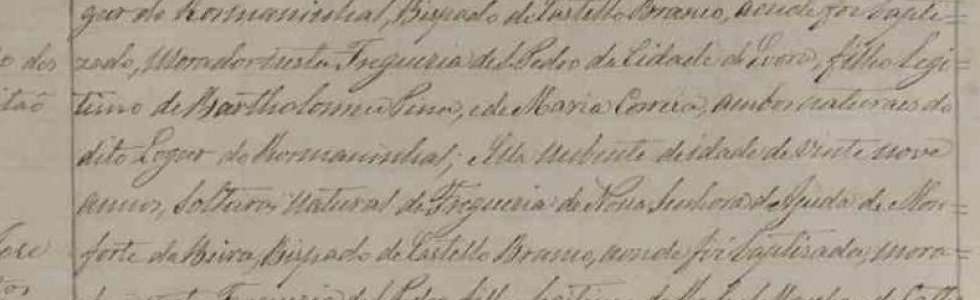 gar do Rosmaninhal, Bispado de Castello Branco, aonde foi bapti=
o dos zado, Morador nesta Freguezia de S. Pedro da Cidade de Evora, filho legi=
itaõ timo de Bartholomeu Pires, e de Maria Correia, ambos naturaes do
dito Logar do Rosmaninhal; Ella Nubente de idade de vinte nove
annos, Solteira, Natural da Freguezia de Nossa Senhora d'Ajuda de Mon=
Jozé forte da Beira, Bispado de Castello Branco, aonde foi baptisada, mora=
Freguezia de S. Pedro, filha legitima de